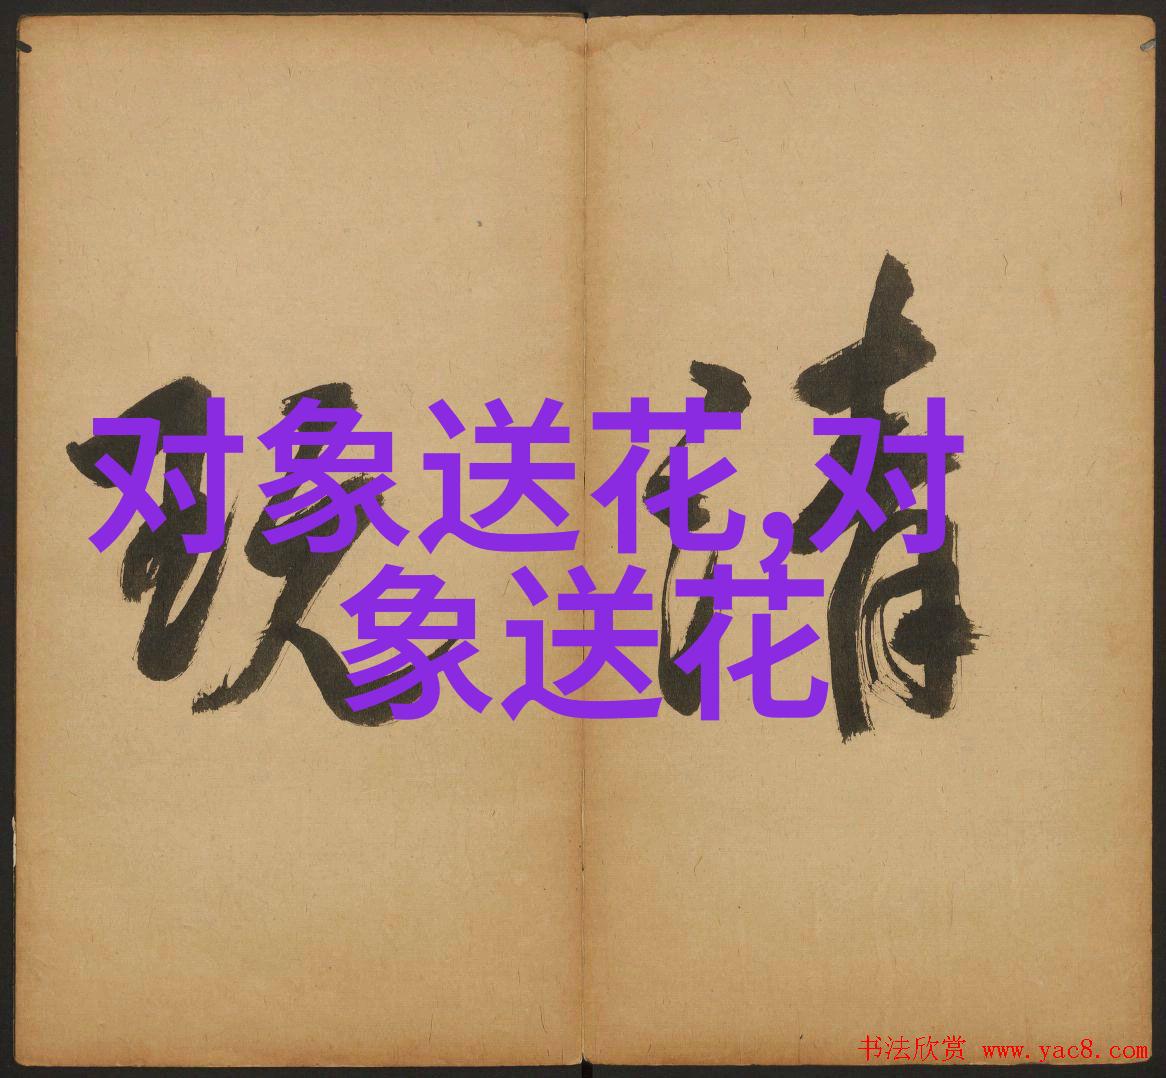 对象送花,对
象送花
清玩
书法欣赏 www.yac8.com